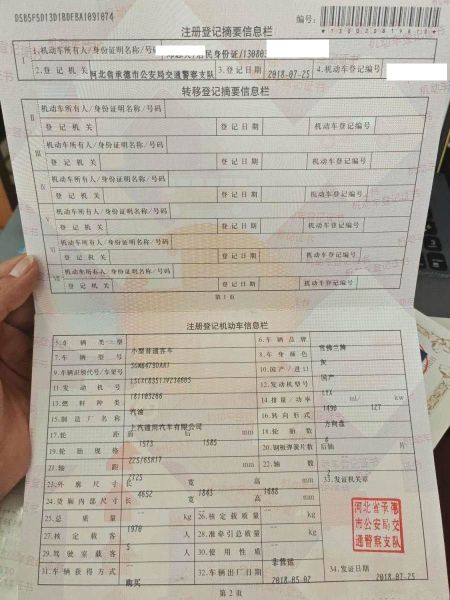 D585F5D13D1BDEBA1091074
注册登记摘要信息栏
编号:
I
1.机动车所有人/身份证明名称/号码 居民身份证/13080
2.登记机关 河北省承德市公安局交通警察支队 3.登记日期 2018-07-25 4.机动车登记编号
转移登记摘要信息栏
II 机动车所有人/身份证明名称/号码
登记机关 登记日期 机动车登记编号
III 机动车所有人/身份证明名称/号码
登记机关 登记日期 机动车登记编号
IV 机动车所有人/身份证明名称/号码
登记机关 登记日期 机动车登记编号
V 机动车所有人/身份证明名称/号码
登记机关 登记日期 机动车登记编号
VI 机动车所有人/身份证明名称/号码
登记机关 登记日期 机动车登记编号
VII 机动车所有人/身份证明名称/号码
登记机关 登记日期 机动车登记编号
第1页
注册登记机动车信息栏
5.车辆类型 小型普通客车 6.车辆品牌 雪佛兰牌
7.车辆型号 8.车身颜色 灰
9.车辆识别代号/车架号 10.国产/进口 国产
11.发动机号 181105286 12.发动机型号 LYX
13.燃料种类 汽油 14.排量/功率 1490 ml/ 127 kw
15.制造厂名称 上汽通用汽车有限公司 16.转向形式 方向盘
17.轮距 前 1573 后 1585 mm 18.轮胎数
19.轮胎规格 225/65R17 20.钢板弹簧片数 后轴 片
21.轴距 2725 mm 22.轴数 2
23.外廓尺寸 长 4652 宽 1843 高 1688 mm 33.发证机关章
24.货厢内部尺寸 长 宽 高 mm
25.总质量 1970 kg 26.核定载质量 kg
27.核定载客 5 人 28.准牵引总质量 kg
29.驾驶室载客 人 30.使用性质 非营运
31.车辆获得方式 购买 32.车辆出厂日期 2018-05-02 34.发证日期 2018-07-25
河北省承德
市公安局交
通警察支队
第2页